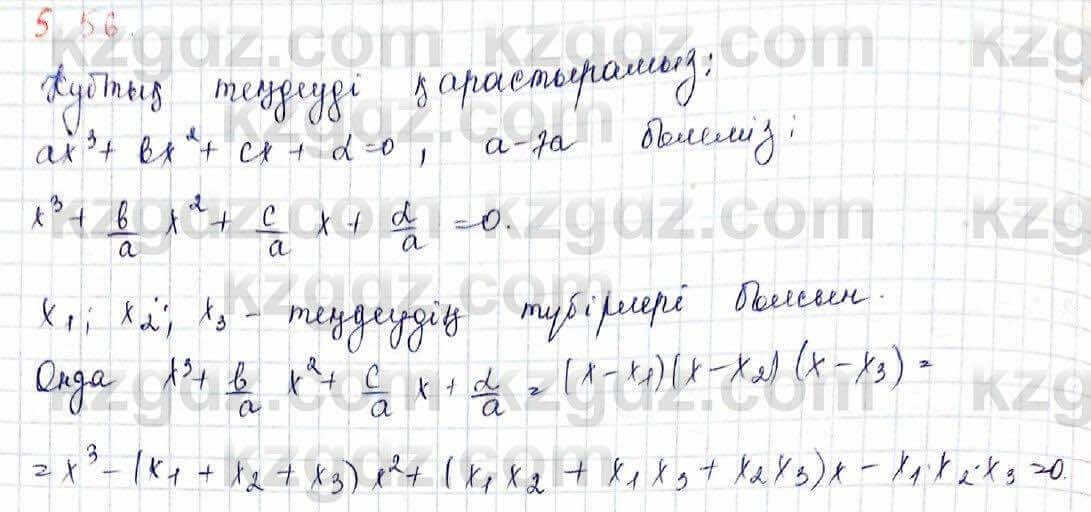 5.56.
Кубтық теңдеуді қарастырамыз:
ax³ + bx² + cx + d = 0, a-ға бөлеміз:
x³ + b/a x² + c/a x + d/a = 0.
x₁; x₂; x₃ – теңдеудің түбірлері болсын.
Онда x³ + b/a x² + c/a x + d/a = (x - x₁)(x - x₂)(x - x₃) =
= x³ - (x₁ + x₂ + x₃)x² + (x₁x₂ + x₁x₃ + x₂x₃)x - x₁·x₂·x₃ = 0.
kzgdz.com